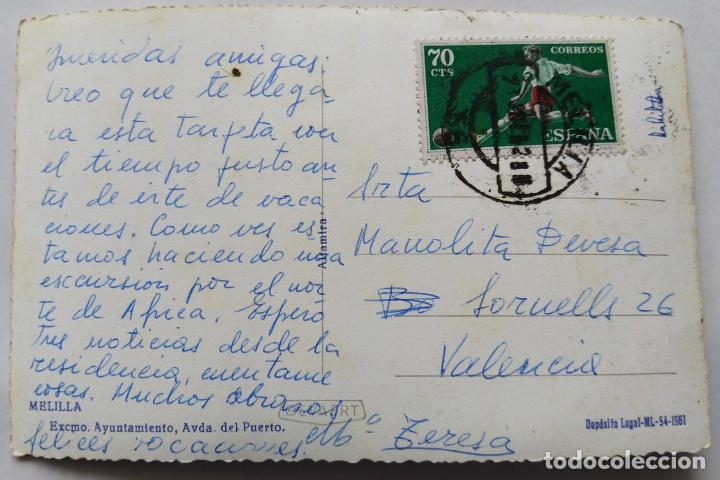 Queridas amigas:
Creo que te llega-
ra esta tarjeta con
el tiempo justo an-
tes de irte de vaca
ciones. Como ves es-
tamos haciendo una
excursión por el nor-
te de Africa. Espero
tus noticias desde la
residencia, cuentame
cosas. Muchos abrazos
felices vacaciones. Mª Teresa
MELILLA
Excmo. Ayuntamiento, Avda. del Puerto.
Altamira
70
CTS
CORREOS
ESPAÑA
MELILLA
Srta
Manolita Devesa
Sornells 26
Valencia
Depósito Legal-ML-54-1961
todocoleccion.net